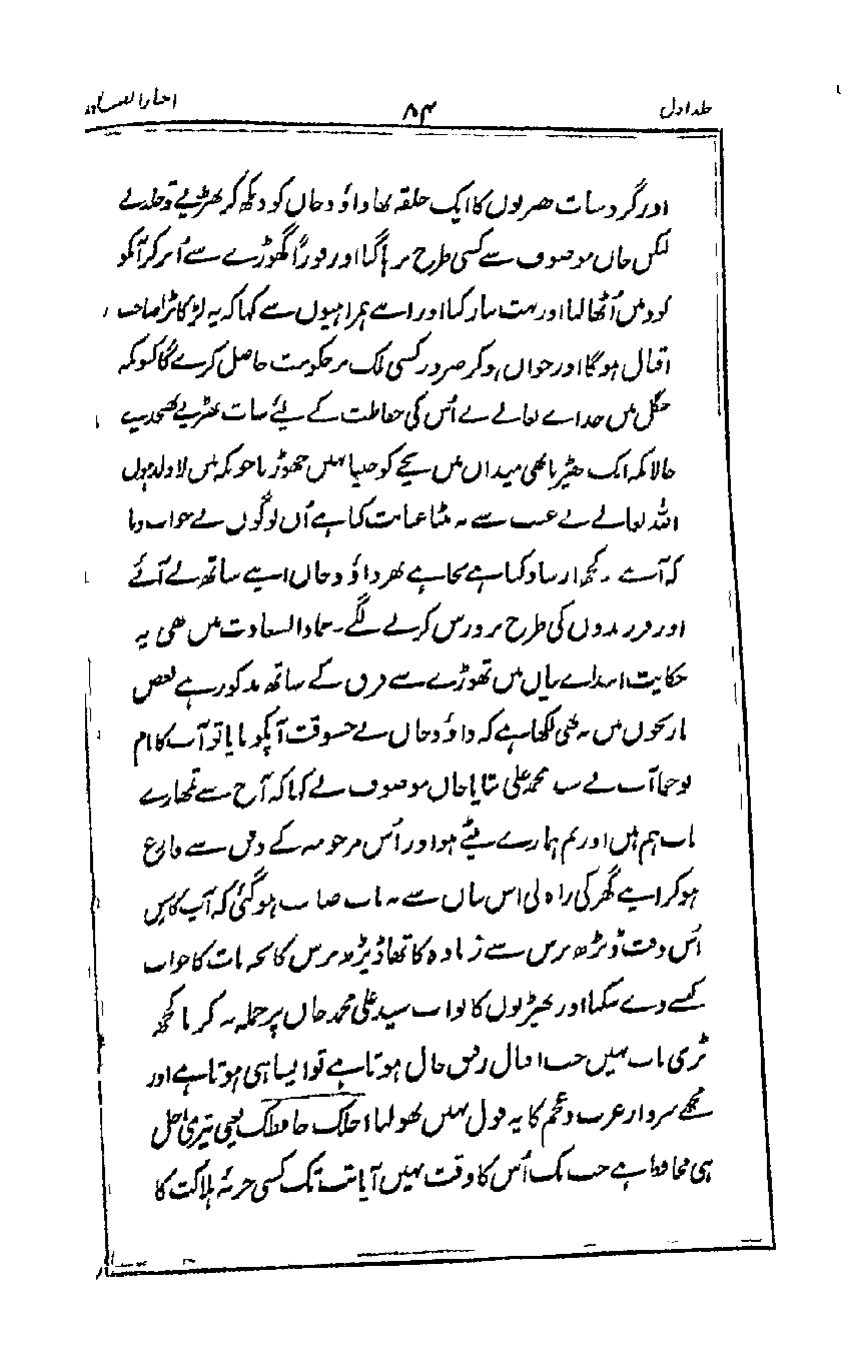 جلد اول ۸۴ اخبار الصنادید
اور گرد سات بھیڑیوں کا ایک حلقہ تھا داؤد خاں کو دیکھ کر بھیڑیے تو چلدیے
لیکن خاں موصوف سے کسی طرح نہ رہا گیا اور فوراً گھوڑے سے اُتر کر آپکو
گود میں اُٹھا لیا اور بہت پیار کیا اور اپنے ہمراہیوں سے کہا کہ یہ لڑکا بڑا صاحب
اقبال ہوگا اور جواں ہوکر ضرور کسی ملک پر حکومت حاصل کرے گا کیونکہ
جنگل میں خداے تعالےٰ نے اُس کی حفاظت کے لیے سات بھیڑیے بھیجدیے
حالانکہ ایک بھیڑیا بھی میدان میں بچے کو جیتا نہیں چھوڑتا چونکہ میں لاولد ہوں
اللہ تعالےٰ نے غیب سے یہ بیٹا عنایت کیا ہے اُن لوگوں نے جواب دیا
کہ آپ نے جو کچھ ارشاد کیا ہے بجا ہے پھر داؤد خاں اپنے ساتھ لے آئے
اور فرزندوں کی طرح پرورش کرنے لگے۔ عماد السعادت میں بھی یہ
حکایت ابتداے بیاں میں تھوڑے سے فرق کے ساتھ مذکور ہے بعض
تاریخوں میں یہ بھی لکھا ہے کہ داؤد خاں نے جسوقت آپکو پایا تو آپ کا نام
پوچھا آپ نے سید محمد علی بتایا خاں موصوف نے کہا کہ آج سے تمھارے
باپ ہم ہیں اور تم ہمارے بیٹے ہو اور اُس مرحومہ کے دفن سے فارغ
ہوکر اپنے گھر کی راہ لی اس بیاں سے یہ بات صاف ہوگئی کہ آپ کا سن
اُس وقت ڈیڑھ برس سے زیادہ کا تھا ڈیڑھ برس کا بچہ بات کا جواب
کیسے دے سکتا اور بھیڑیوں کا نواب سید علی محمد خاں پر حملہ نہ کرنا کچھ
بڑی بات نہیں جب اقبال رفیق حال ہوتا ہے تو ایسا ہی ہوتا ہے اور
مجھے سردار عرب و عجم کا یہ قول نہیں بھولتا اجلک حافظک یعنی تیری اجل
ہی محافظ ہے جب تک اُس کا وقت نہیں آیا تب تک کسی حربۂ ہلاکت کا